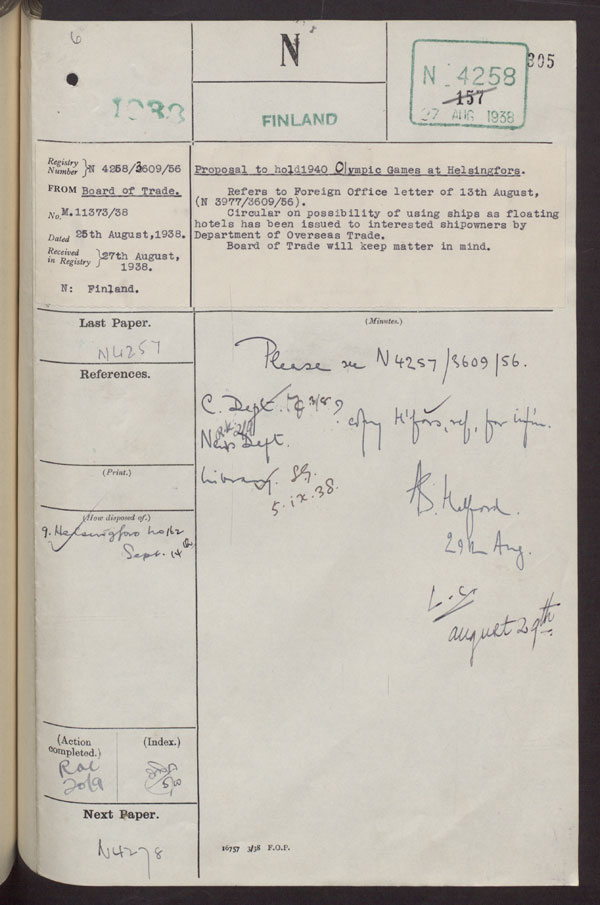 6
N
305
N 4258
157
27 AUG 1938
1938
FINLAND
Registry Number } N 4258/3609/56
FROM Board of Trade.
No. M.11373/38
Dated 25th August, 1938.
Received in Registry } 27th August, 1938.
N: Finland.
Proposal to hold 1940 Olympic Games at Helsingfors.
Refers to Foreign Office letter of 13th August,
(N 3977/3609/56).
Circular on possibility of using ships as floating
hotels has been issued to interested shipowners by
Department of Overseas Trade.
Board of Trade will keep matter in mind.
Last Paper.
N4257
References.
(Print.)
(How disposed of.)
Helsingfors No 162
Sept. 14
(Action completed.)
20/9
(Index.)
Next Paper.
N4278
(Minutes.)
Please see N4257/3609/56.
C. Dept.
copy H'fors, ref, for infn.
News Dept.
Library.
5.ix.38.
29th Aug.
August 29th
16757 3/38 F.O.P.